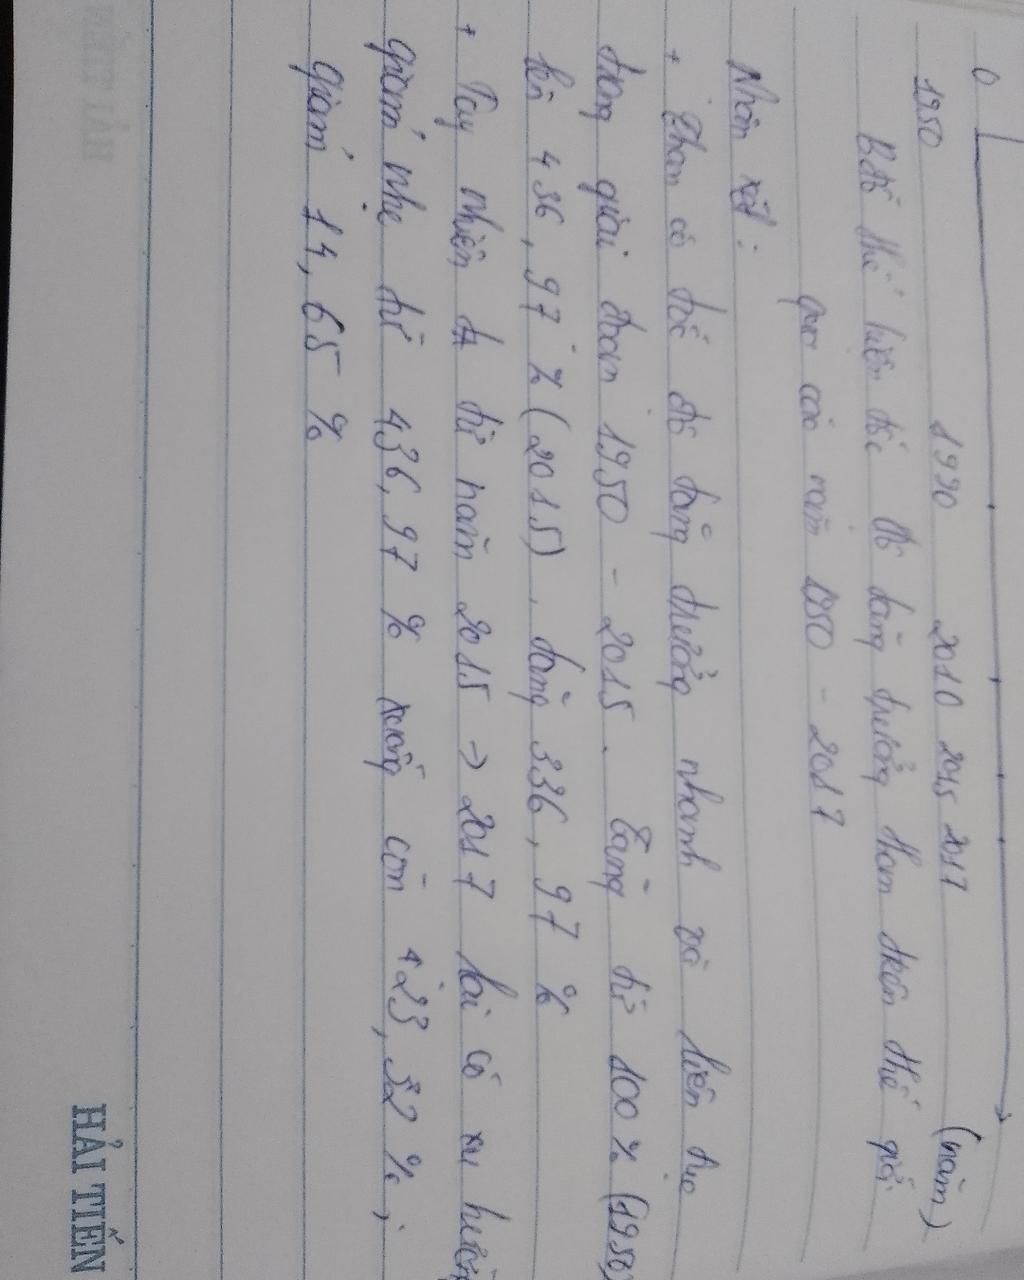 0
1950 1990 2010 2015 2017 (năm)
Bđồ thể hiện tốc độ tăng trưởng than trên thế giới
qua các năm 1950 - 2017
Nhận xét:
+ Than có tốc độ tăng trưởng nhanh và liên tục
trong giai đoạn 1950 - 2015. Tăng từ 100% (1950)
lên 436,97% (2015), tăng 336,97%
+ Tuy nhiên từ năm 2015 -> 2017 lại có xu hướng
giảm nhẹ từ 436,97% xuống còn 423,32%,
giảm 14,65%
HẢI TIẾN